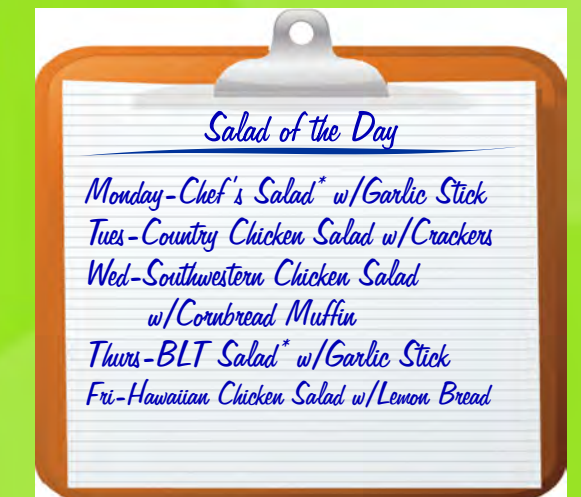 Salad of the Day
Monday-Chef's Salad* w/Garlic Stick
Tues-Country Chicken Salad w/Crackers
Wed-Southwestern Chicken Salad
w/Cornbread Muffin
Thurs-BLT Salad* w/Garlic Stick
Fri-Hawaiian Chicken Salad w/Lemon Bread